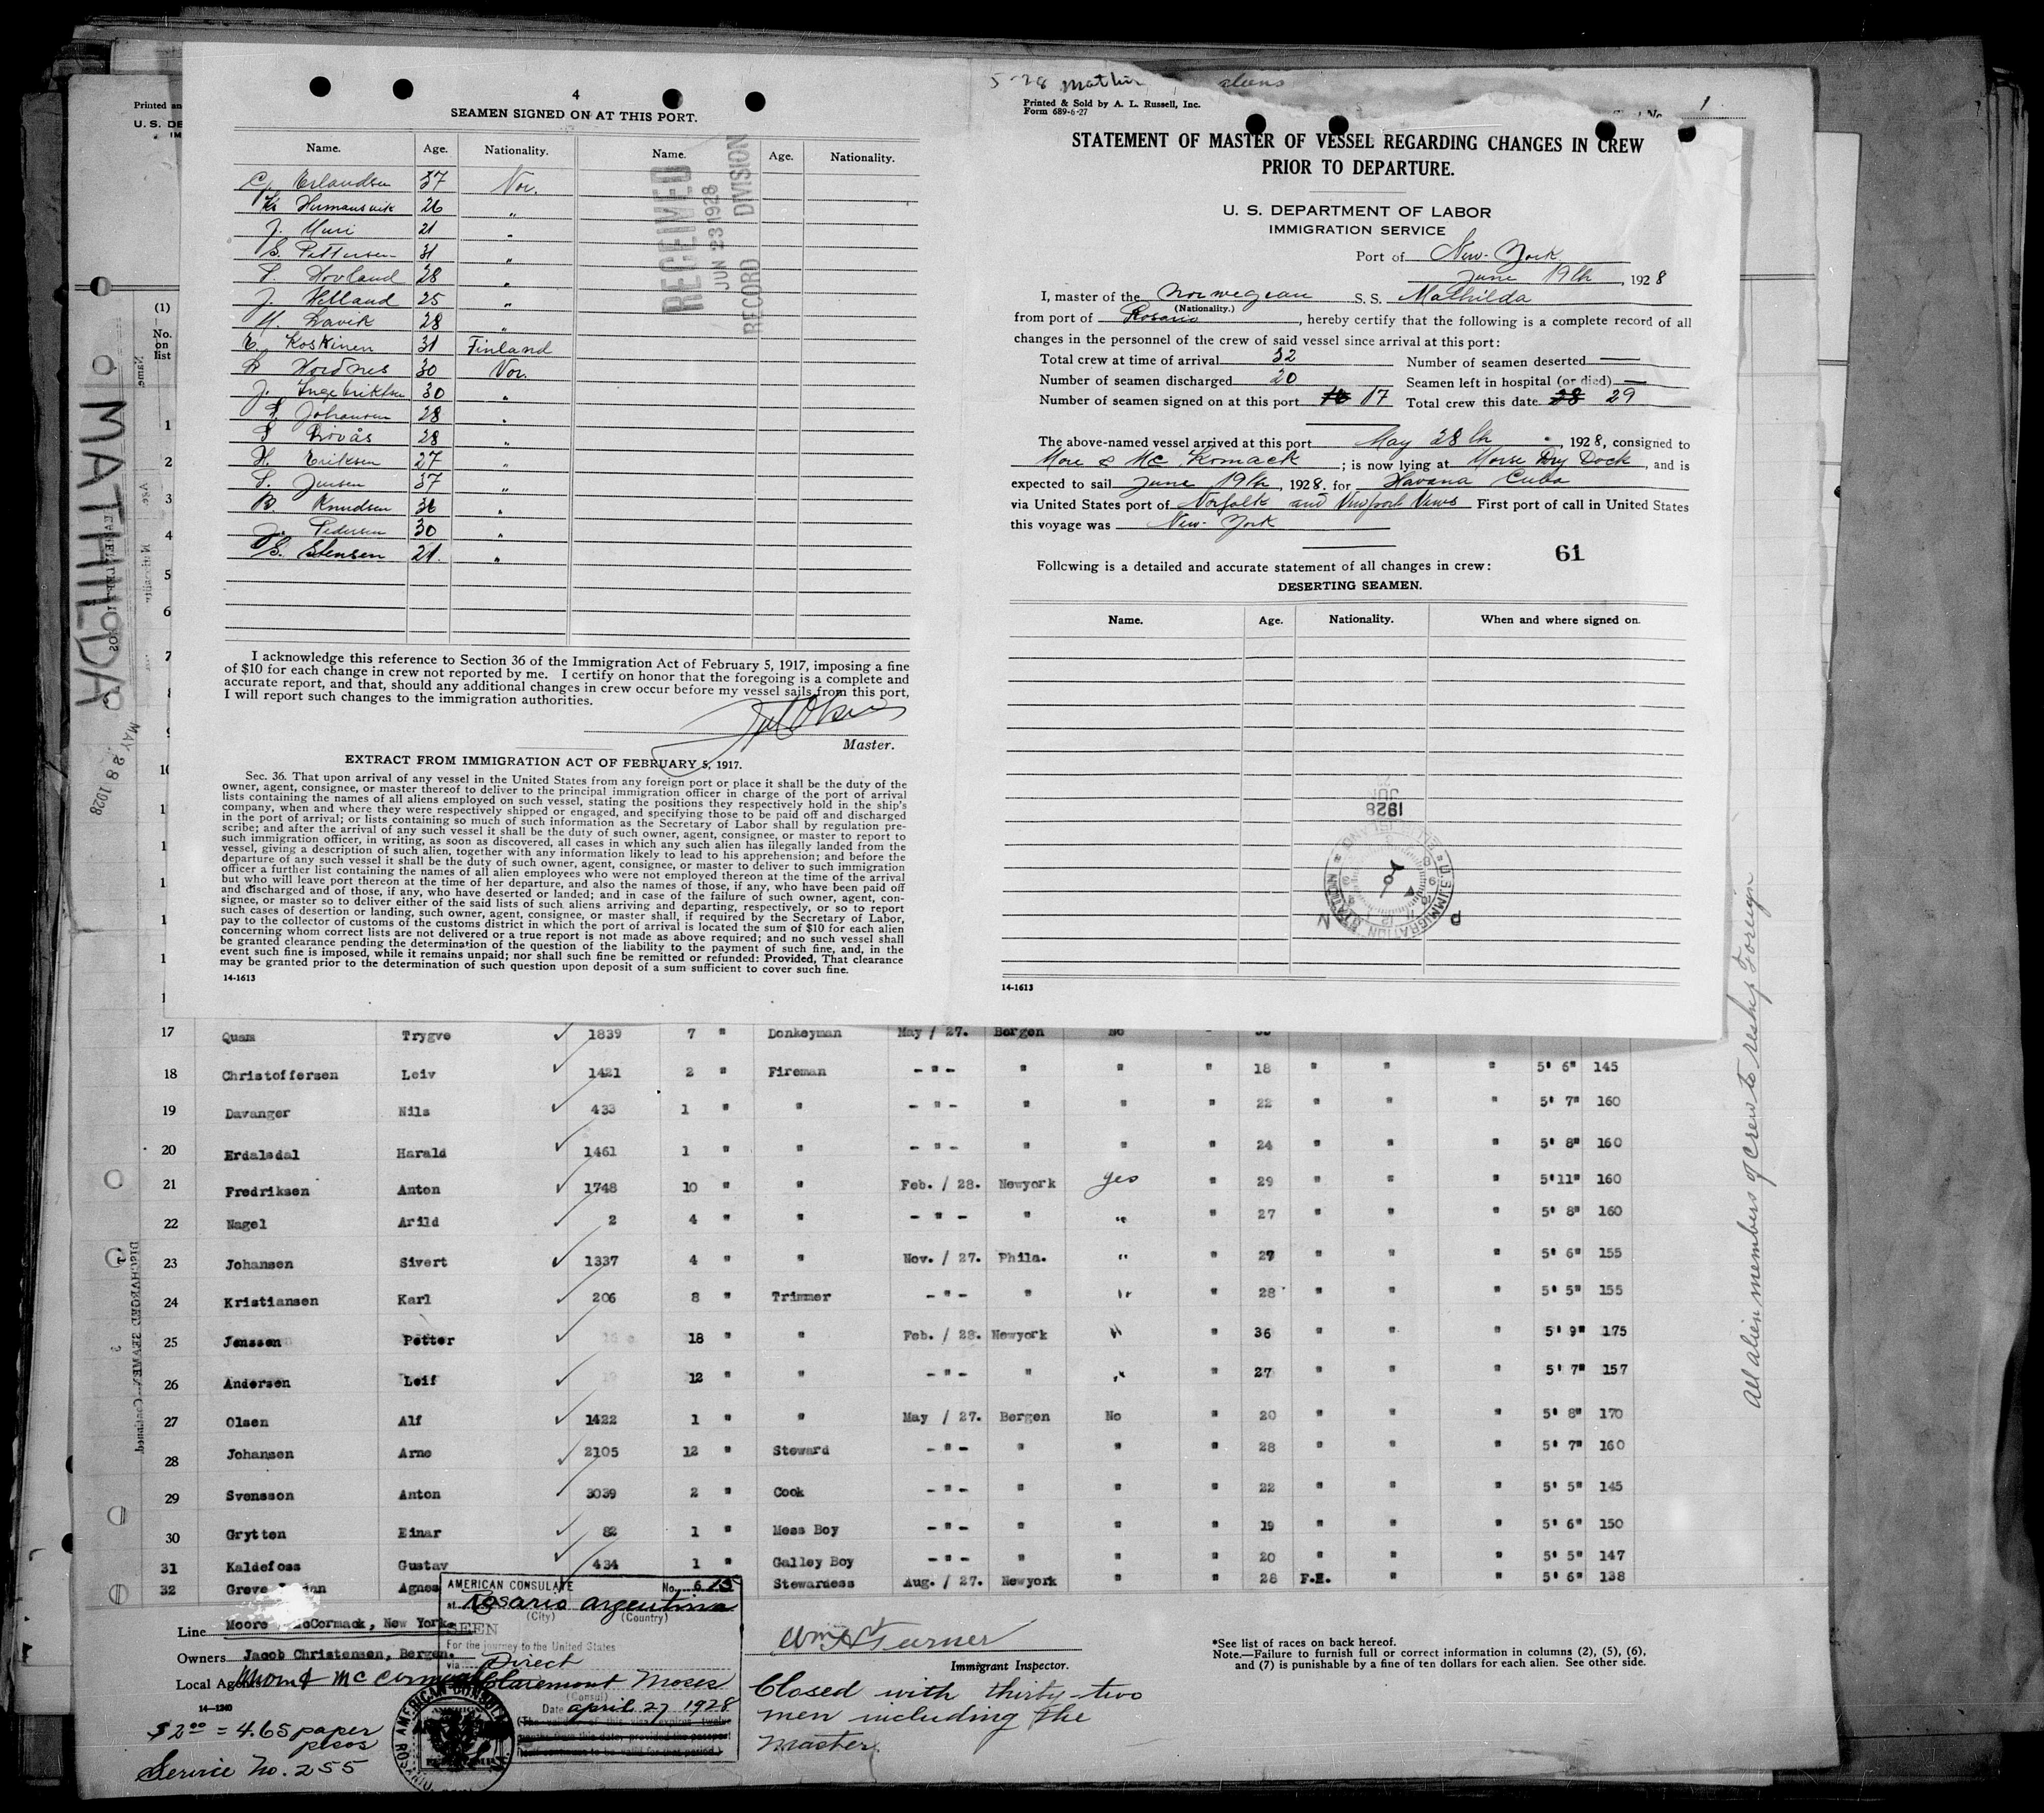 4
SEAMEN SIGNED ON AT THIS PORT.
Name. Age. Nationality. Name. Age. Nationality.
C. Erlandsen 37 Nor.
26 "
J. Muri 21 "
S. Pettersen 31 "
Hovland 28 "
J. Helland 25 "
Lavik 28 "
E. Koskinen 31 Finland
Hordnes 30 Nor.
J. Ingebriktsen 30 "
Johansen 28 "
Løvås 28 "
H. Eriksen 27 "
Jensen 37 "
B Knudsen 36 "
Pedersen 30 "
G. Stensen 21. "
RECEIVED
JUN 23 1928
RECORD DIVISION
I acknowledge this reference to Section 36 of the Immigration Act of February 5, 1917, imposing a fine
of $10 for each change in crew not reported by me. I certify on honor that the foregoing is a complete and
accurate report, and that, should any additional changes in crew occur before my vessel sails from this port,
I will report such changes to the immigration authorities.
Master.
EXTRACT FROM IMMIGRATION ACT OF FEBRUARY 5, 1917.
Sec. 36. That upon arrival of any vessel in the United States from any foreign port or place it shall be the duty of the
owner, agent, consignee, or master thereof to deliver to the principal immigration officer in charge of the port of arrival
lists containing the names of all aliens employed on such vessel, stating the positions they respectively hold in the ship's
company, when and where they were respectively shipped or engaged, and specifying those to be paid off and discharged
in the port of arrival; or lists containing so much of such information as the Secretary of Labor shall by regulation pre-
scribe; and after the arrival of any such vessel it shall be the duty of such owner, agent, consignee, or master to report to
such immigration officer, in writing, as soon as discovered, all cases in which any such alien has illegally landed from the
vessel, giving a description of such alien, together with any information likely to lead to his apprehension; and before the
departure of any such vessel it shall be the duty of such owner, agent, consignee, or master to deliver to such immigration
officer a further list containing the names of all alien employees who were not employed thereon at the time of the arrival
but who will leave port thereon at the time of her departure, and also the names of those, if any, who have been paid off
and discharged and of those, if any, who have deserted or landed; and in case of the failure of such owner, agent, con-
signee, or master so to deliver either of the said lists of such aliens arriving and departing, respectively, or so to report
such cases of desertion or landing, such owner, agent, consignee, or master shall, if required by the Secretary of Labor,
pay to the collector of customs of the customs district in which the port of arrival is located the sum of $10 for each alien
concerning whom correct lists are not delivered or a true report is not made as above required; and no such vessel shall
be granted clearance pending the determination of the question of the liability to the payment of such fine, and, in the
event such fine is imposed, while it remains unpaid; nor shall such fine be remitted or refunded: Provided, That clearance
may be granted prior to the determination of such question upon deposit of a sum sufficient to cover such fine.
14-1613
5-28 aliens
1
Printed & Sold by A. L. Russell, Inc.
Form 689-6-27
STATEMENT OF MASTER OF VESSEL REGARDING CHANGES IN CREW
PRIOR TO DEPARTURE.
U. S. DEPARTMENT OF LABOR
IMMIGRATION SERVICE
Port of New-York
June 19th, 1928
I, master of the norwegean S. S. Mathilda
(Nationality.)
from port of Rosario, hereby certify that the following is a complete record of all
changes in the personnel of the crew of said vessel since arrival at this port:
Total crew at time of arrival 32 Number of seamen deserted —
Number of seamen discharged 20 Seamen left in hospital (or died) —
Number of seamen signed on at this port 16 17 Total crew this date 28 29
The above-named vessel arrived at this port May 28th, 1928, consigned to
More & Mc Komack; is now lying at Morse Dry Dock, and is
expected to sail June 19th, 1928. for Havana Cuba
via United States port of Norfolk and Newport News First port of call in United States
this voyage was New-York
61
Following is a detailed and accurate statement of all changes in crew:
DESERTING SEAMEN.
Name. Age. Nationality. When and where signed on.
1928
U.S. IMMIGRATION STATION
14-1613
Printed an
U. S. DE
IM
(1)
No.
on
list
1
2
3
4
5
6
7
MATHILDA
MAY 28 1928
DISCHARGED SEAMEN—Continued.
17 Quam Trygve 1839 7 " Donkeyman May / 27. Bergen No "
18 Christoffersen Leiv 1421 2 " Fireman -"- " " " 18 " " " 5' 6" 145
19 Davanger Nils 433 1 " " -"- " " " 22 " " " 5' 7" 160
20 Erdalsdal Harald 1461 1 " " -"- " " " 24 " " " 5' 8" 160
21 Fredriksen Anton 1748 10 " " Feb. / 28. Newyork yes " 29 " " " 5'11" 160
22 Nagel Arild 2 4 " " -"- " " " 27 " " " 5' 8" 160
23 Johansen Sivert 1337 4 " " Nov. / 27. Phila. " " 27 " " " 5' 6" 155
24 Kristiansen Karl 206 8 " Trimmer -"- " " " 28 " " " 5' 5" 155
25 Jenssen Petter 18 " " Feb. / 28. Newyork " " 36 " " " 5' 9" 175
26 Andersen Leif 12 " " -"- " " " 27 " " " 5' 7" 157
27 Olsen Alf 1422 1 " " May / 27. Bergen No " 20 " " " 5' 8" 170
28 Johansen Arne 2105 12 " Steward -"- " " " 28 " " " 5' 7" 160
29 Svensson Anton 3039 2 " Cook -"- " " " 22 " " " 5' 5" 145
30 Grytten Einar 82 1 " Mess Boy -"- " " " 19 " " " 5' 6" 150
31 Kaldefoss Gustav 434 1 " Galley Boy -"- " " " 20 " " " 5' 5" 147
32 Greve Agnes Stewardess Aug. / 27. Newyork " " 28 F.E. " " 5' 6" 138
All alien members of crew to reship Foreign
Line Moore McCormack, New York.
Owners Jacob Christensen, Bergen.
Local Agents Moore & McCormack
14-1240
$2.00 = 4.65 paper
pesos
Service No. 255
AMERICAN CONSULATE No. 615
at Rosario argentina
(City) (Country)
SEEN
For the journey to the United States
via Direct
Claremont Moses
(Consul)
Date april 27 1928
AMERICAN CONSULATE ROSARIO
Wm A Turner
Immigrant Inspector.
Closed with thirty-two
men including the
master.
*See list of races on back hereof.
Note.—Failure to furnish full or correct information in columns (2), (5), (6),
and (7) is punishable by a fine of ten dollars for each alien. See other side.